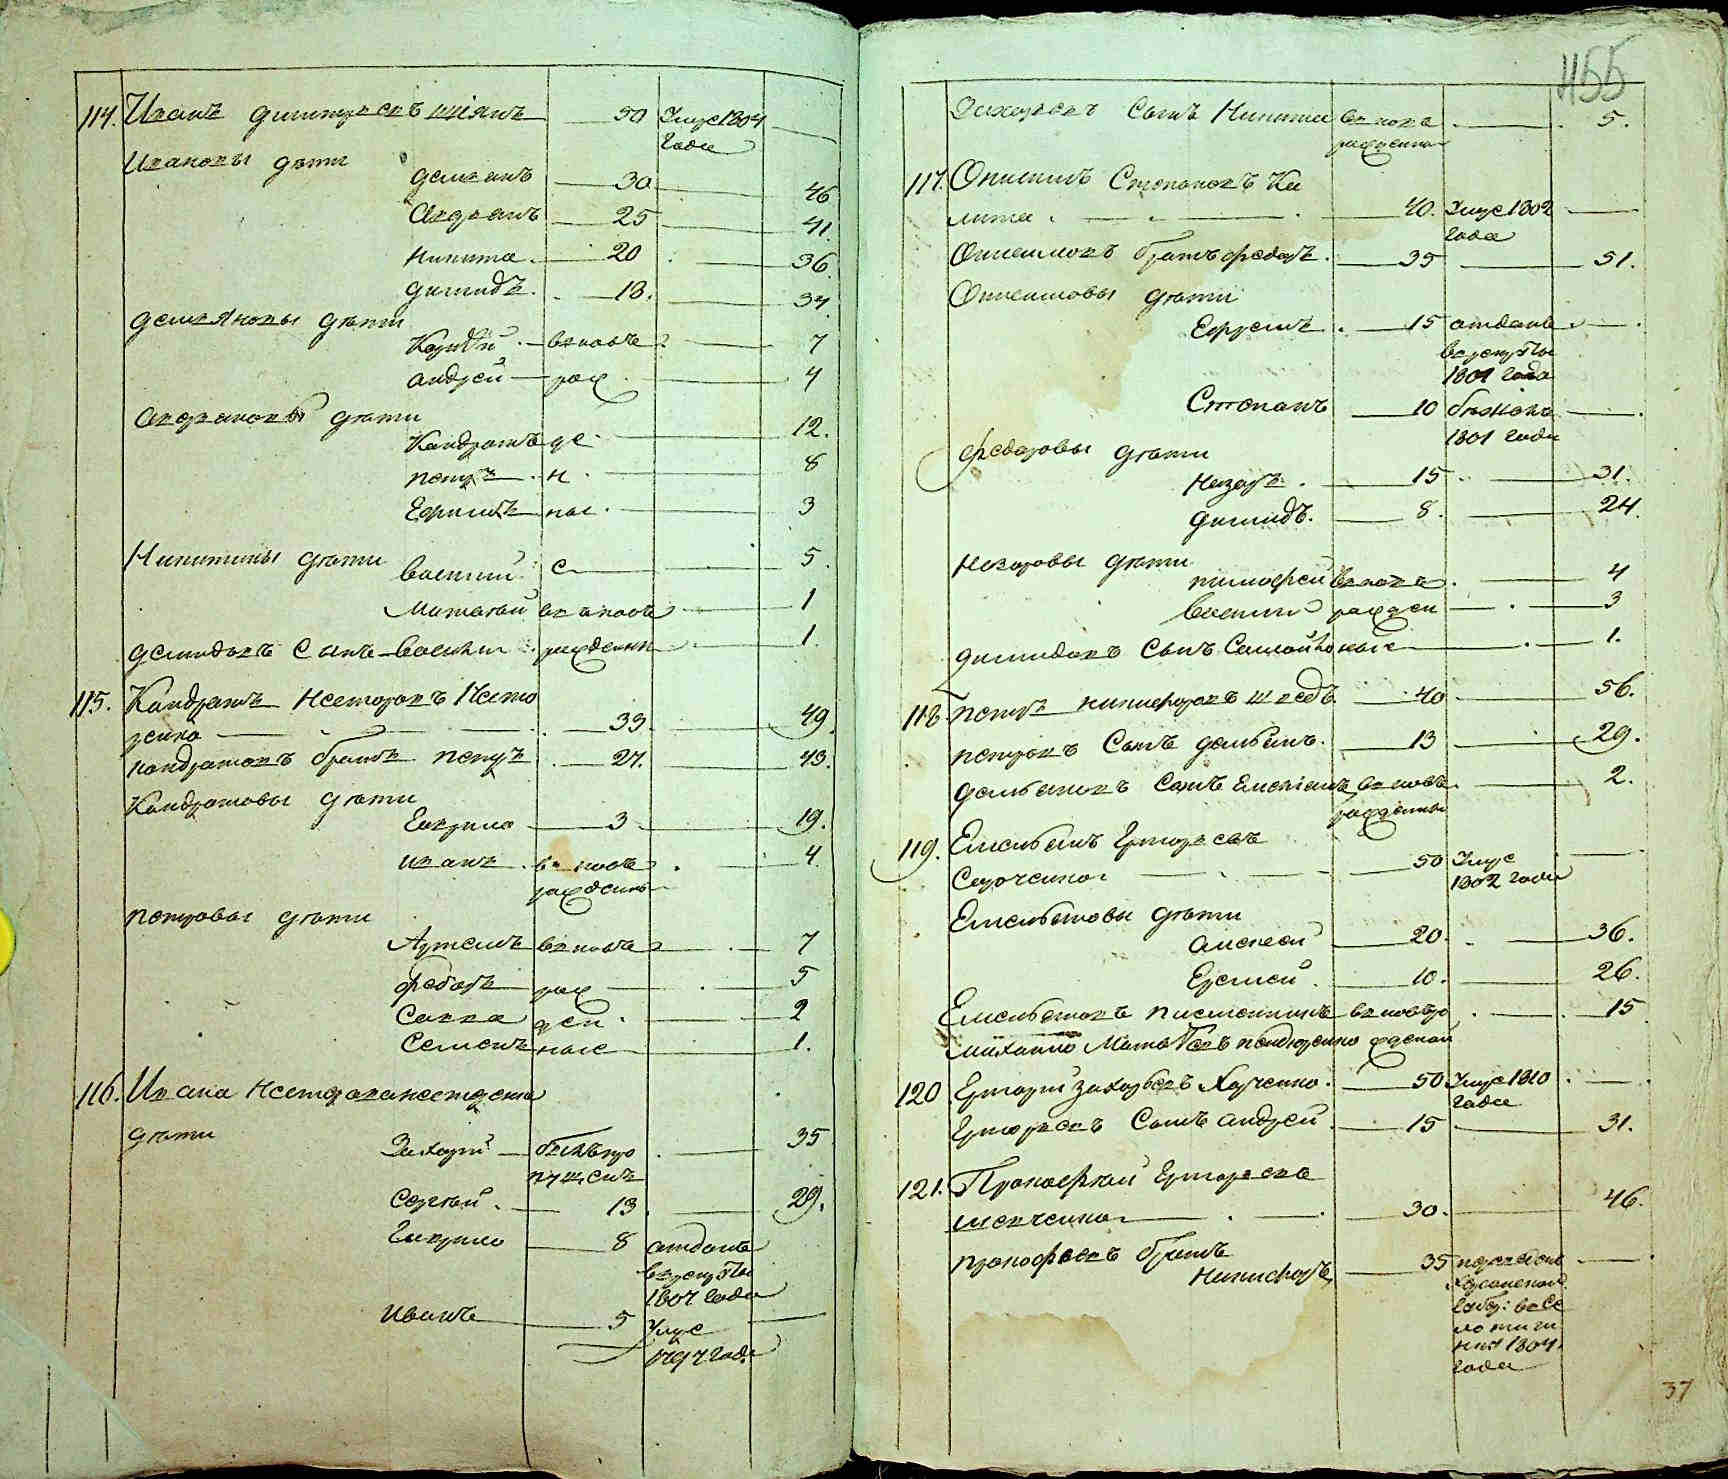 114. Иванъ Димитріевъ шіянъ — 50 Умре 1804 —
года
Ивановы дѣти
Демьянъ — 30 — 46
Андреянъ — 25 — 41.
Никита — 20 — 36.
Димидъ — 18. — 34
Демьяновы дѣти
Корнѣй — вновь — 7
Андрей — рож — 4
Андреяновы дѣти
Кондратъ де — 12.
Петръ — н — 8
Ефимъ ные — 3
Никитины дѣти
Василий с — 5.
Матвѣй вновь — 1
Демидовъ сынъ Василий рожденни — 1.
115. Кандратъ Несторовъ Несте
ренко — 33 — 49.
Кандратовъ братъ Петръ — 27. — 43.
Кандратовы дѣти
Гаврило — 3 — 19.
Иванъ вновь — 4
рожденъ
Петровы дѣти
Артемъ вновь — 7
Федоръ рож — 5
Савва ден — 2
Семенъ ные — 1.
116. Ивана Нестерова нестеренка
дѣти
Захарій — былъ про — 35
пущенъ
Сергѣй — 13 — 29.
Гаврило — 8 отданъ
в рекруты
1807 года
Иванъ — 5 Умре —
1797 года
455
Захаровъ сынъ Никита вново — 5.
рожденно
117. Онисимъ Степановъ Ка
лита — 40. Умре 1802 —
года
Онисимовъ братъ Федоръ — 35 — 51.
Онисимовы дѣти
Ефремъ — 15 отданъ —
в рекруты
1807 года
Степанъ — 10 бежалъ —
1801 года
Федоровы дѣти
Назаръ — 15 — 31.
Димидъ. — 8. — 24.
Назаровы дѣти
Тимофей вновь — 4
Василий рожден — 3
Димидовъ сынъ Самойло ные — 1.
118. Петръ Никифоровъ шведъ — 40 — 56.
Петровъ сынъ Демьянъ — 13 — 29.
Демьяновъ сынъ Емельянъ вновь — 2.
рожденный
119. Емельянъ Григорьевъ
— 50 Умре —
1802 года
Емельяновы дѣти
Алексей — 20. — 36.
Еремей — 10. — 26.
Емельяновъ племянникъ — 15
Михайло Матвѣевъ
120 Григорій Захарьевъ Харченко — 50 Умре 1810 —
года
Григорьевъ сынъ Андрей — 15 — 31.
121. Прокофѣй Григорьевъ
шевченко — 30. — 46.
Прокофьевъ братъ
Никифоръ — 35 —
1804
года
37